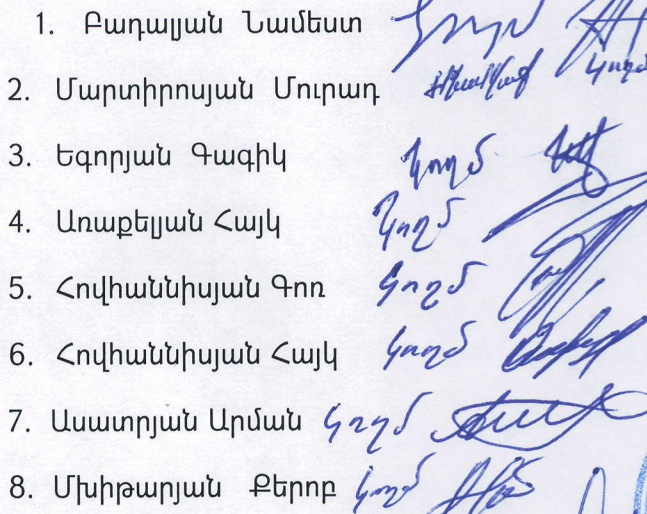 1. Բադալյան Նամեստ կողմ
2. Մարտիրոսյան Մուրադ կողմ
3. Եգորյան Գագիկ կողմ
4. Առաքելյան Հայկ կողմ
5. Հովհաննիսյան Գոռ կողմ
6. Հովհաննիսյան Հայկ կողմ
7. Ասատրյան Արման կողմ
8. Մխիթարյան Քերոբ կողմ